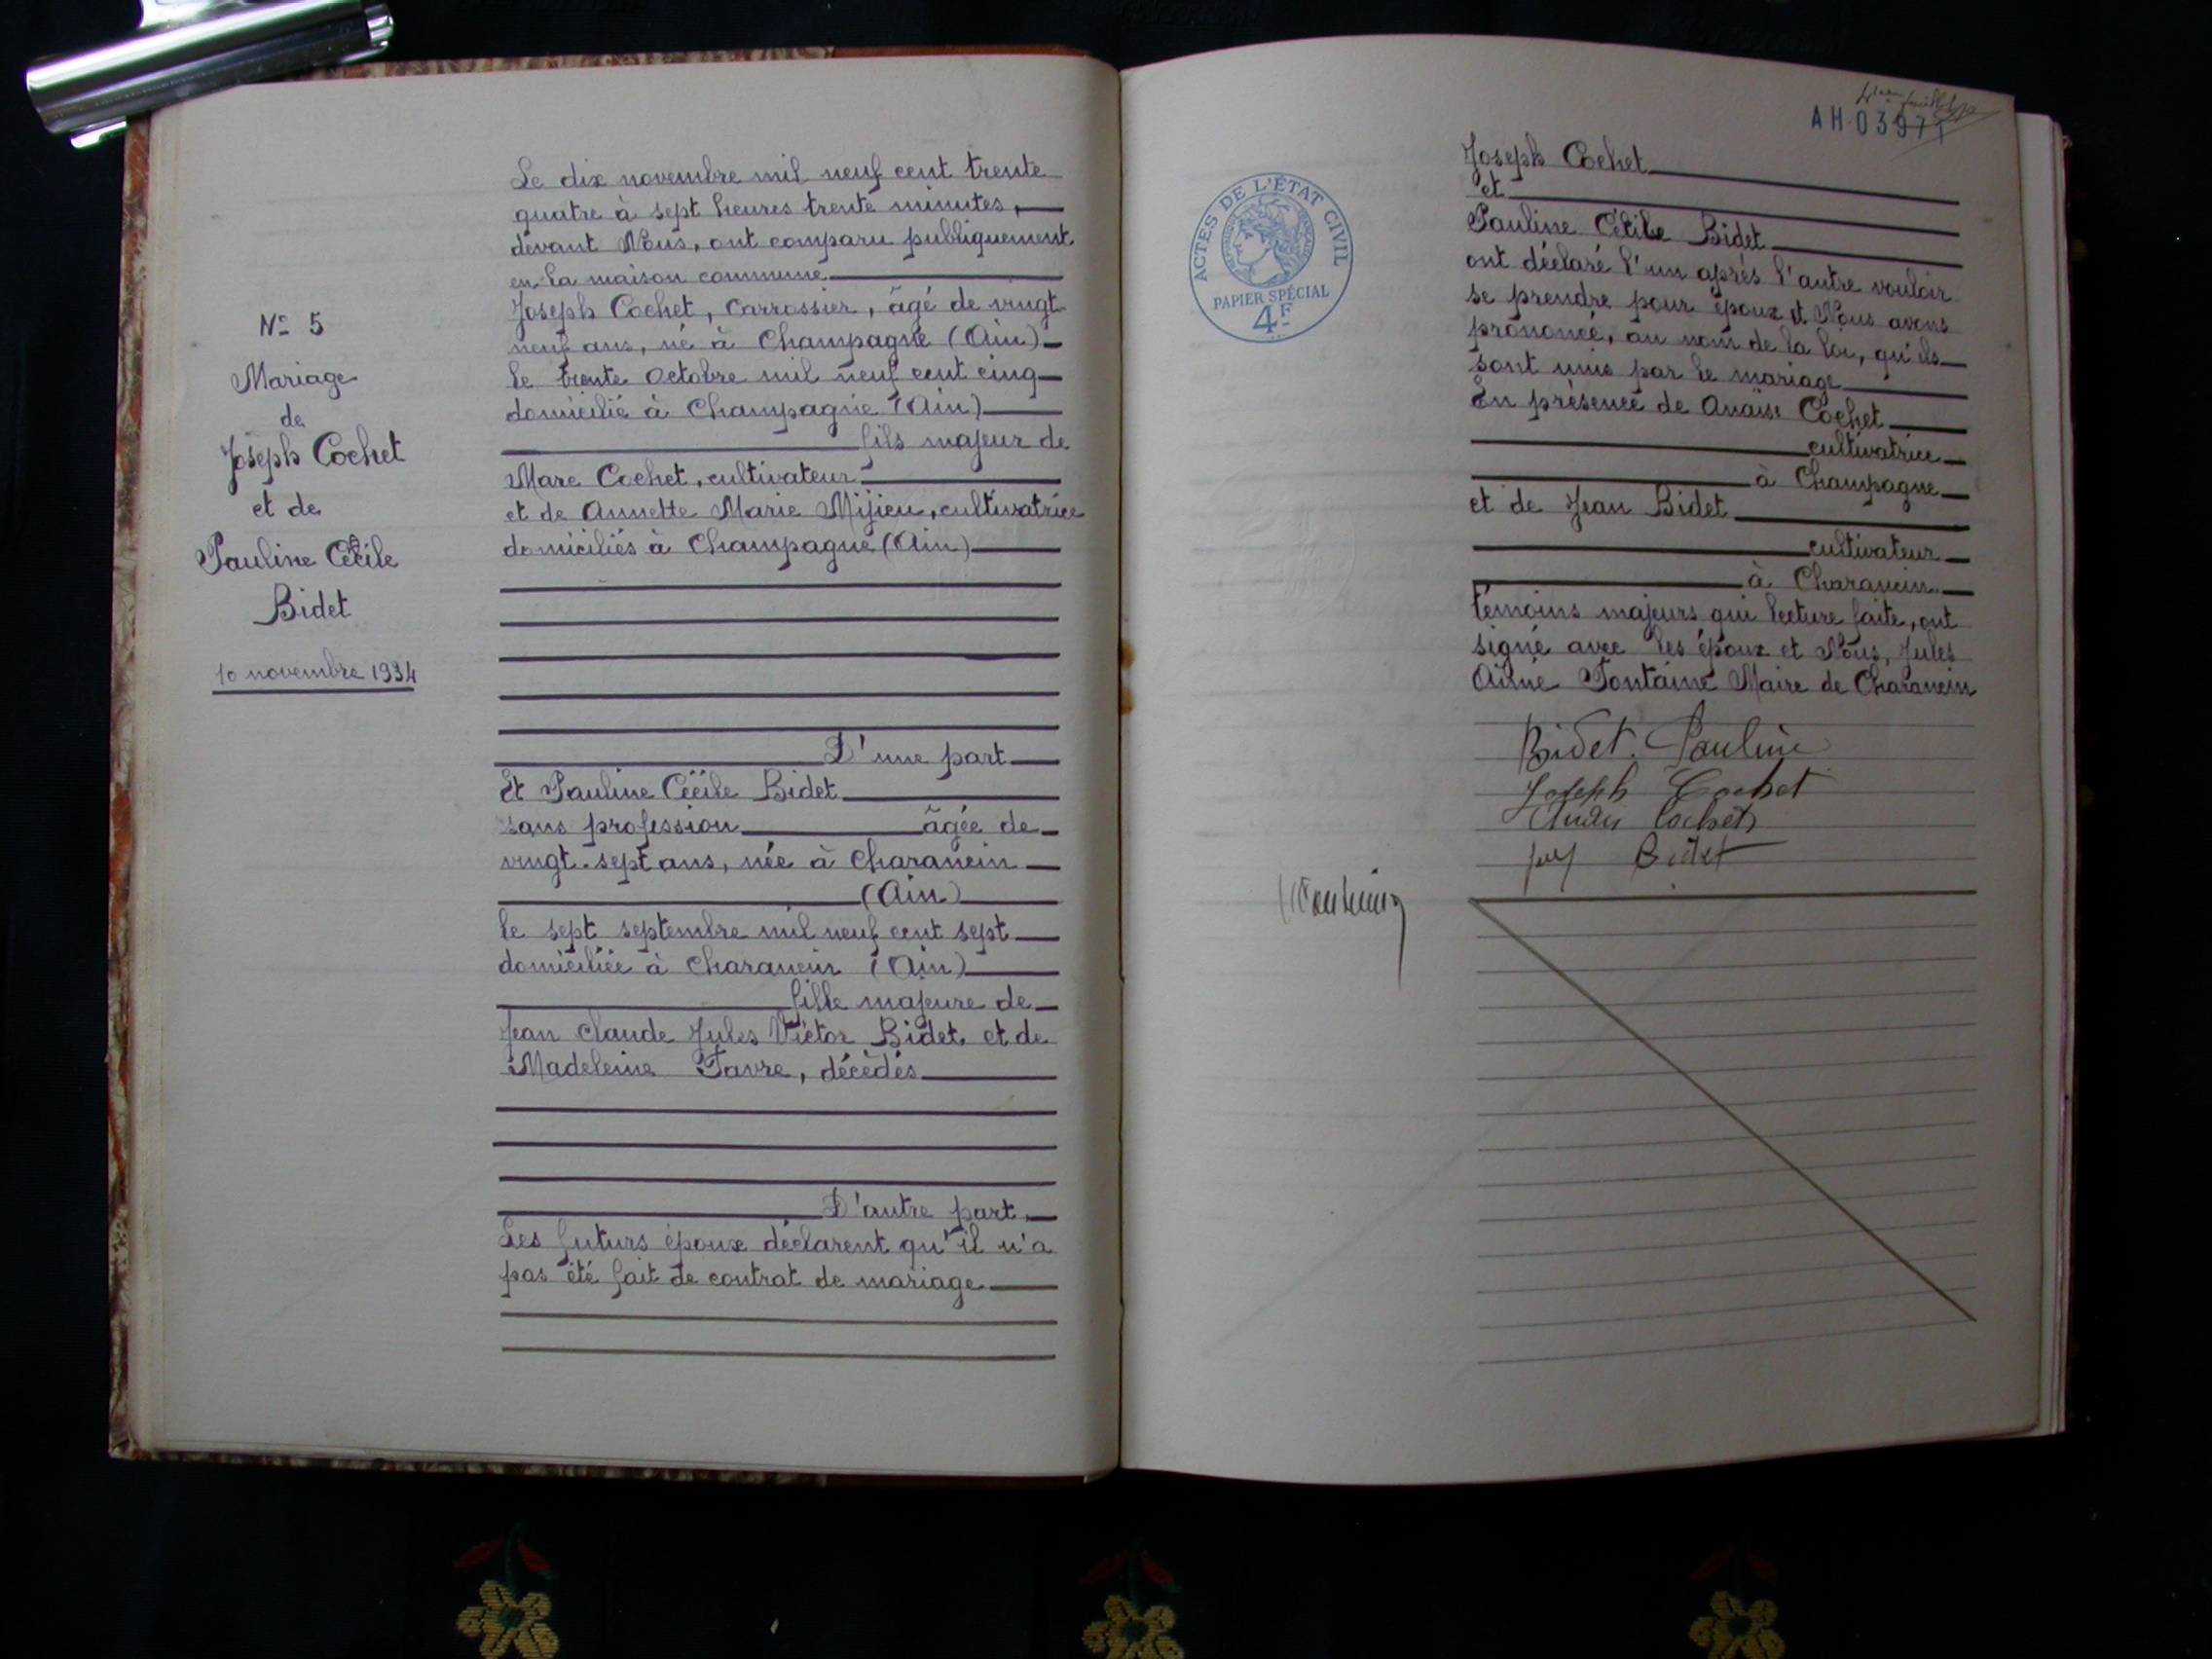 N° 5
Mariage
de
Joseph Cochet
et de
Pauline Cécile
Bidet
10 novembre 1934
Le dix novembre mil neuf cent trente
quatre à sept heures trente minutes,
devant Nous, ont comparu publiquement
en la maison commune
Joseph Cochet, Carrossier, âgé de vingt
neuf ans, né à Champagne (Ain)
le trente Octobre mil neuf cent cinq
domicilié à Champagne (Ain)
fils majeur de
Marc Cochet, cultivateur
et de Annette Marie Mijieu, cultivatrice
domiciliés à Champagne (Ain)
D'une part
Et Pauline Cécile Bidet
sans profession âgée de
vingt-sept ans, née à Charancin
(Ain)
le sept septembre mil neuf cent sept
domiciliée à Charancin (Ain)
fille majeure de
Jean Claude Jules Victor Bidet et de
Madeleine Favre, décédés
D'autre part.
Les futurs époux déclarent qu'il n'a
pas été fait de contrat de mariage
AH·03971
ACTES DE L'ÉTAT CIVIL
RÉPUBLIQUE FRANÇAISE
PAPIER SPÉCIAL
4F
Joseph Cochet
et
Pauline Cécile Bidet
ont déclaré l'un après l'autre vouloir
se prendre pour époux et Nous avons
prononcé, au nom de la loi, qu'ils
sont unis par le mariage
En présence de Anaïs Cochet
cultivatrice
à Champagne
et de Jean Bidet
cultivateur
à Charancin
témoins majeurs qui lecture faite, ont
signé avec les époux et Nous, Jules
Aimé Fontaine Maire de Charancin
Bidet. Pauline
Joseph Cochet
Cochet
Bidet